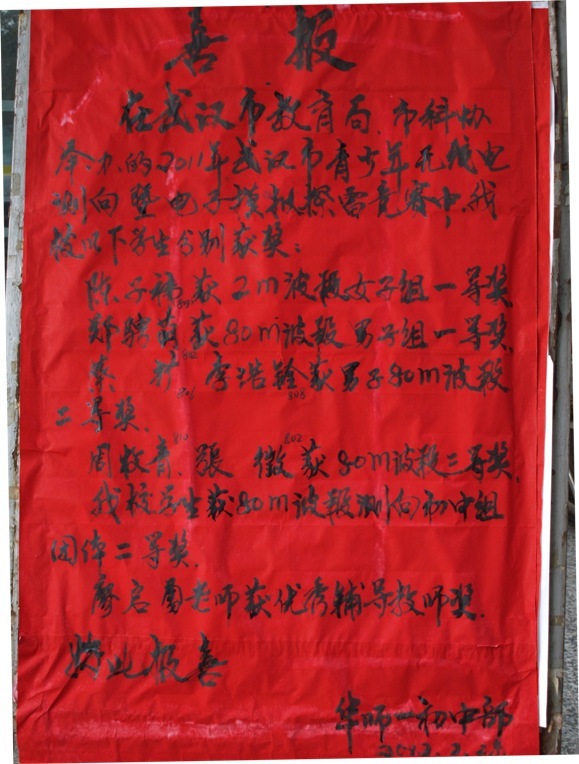 喜报
在武汉市教育局、市科协
举办的2011年武汉市青少年无线电
测向暨电子模拟探雷竞赛中,我
校以下学生分别获奖:
陈子祎获2m波段女子组一等奖
郑骁 获80m波段男子组一等奖,
秦 扩 李浩铨获男子80m波段
二等奖,
周牧青 張 徵 获80m波段三等奖,
我校学生获80m波段测向初中组
团体二等奖,
廖启勇老师获优秀辅导教师奖.
特此报喜
华师一初中部